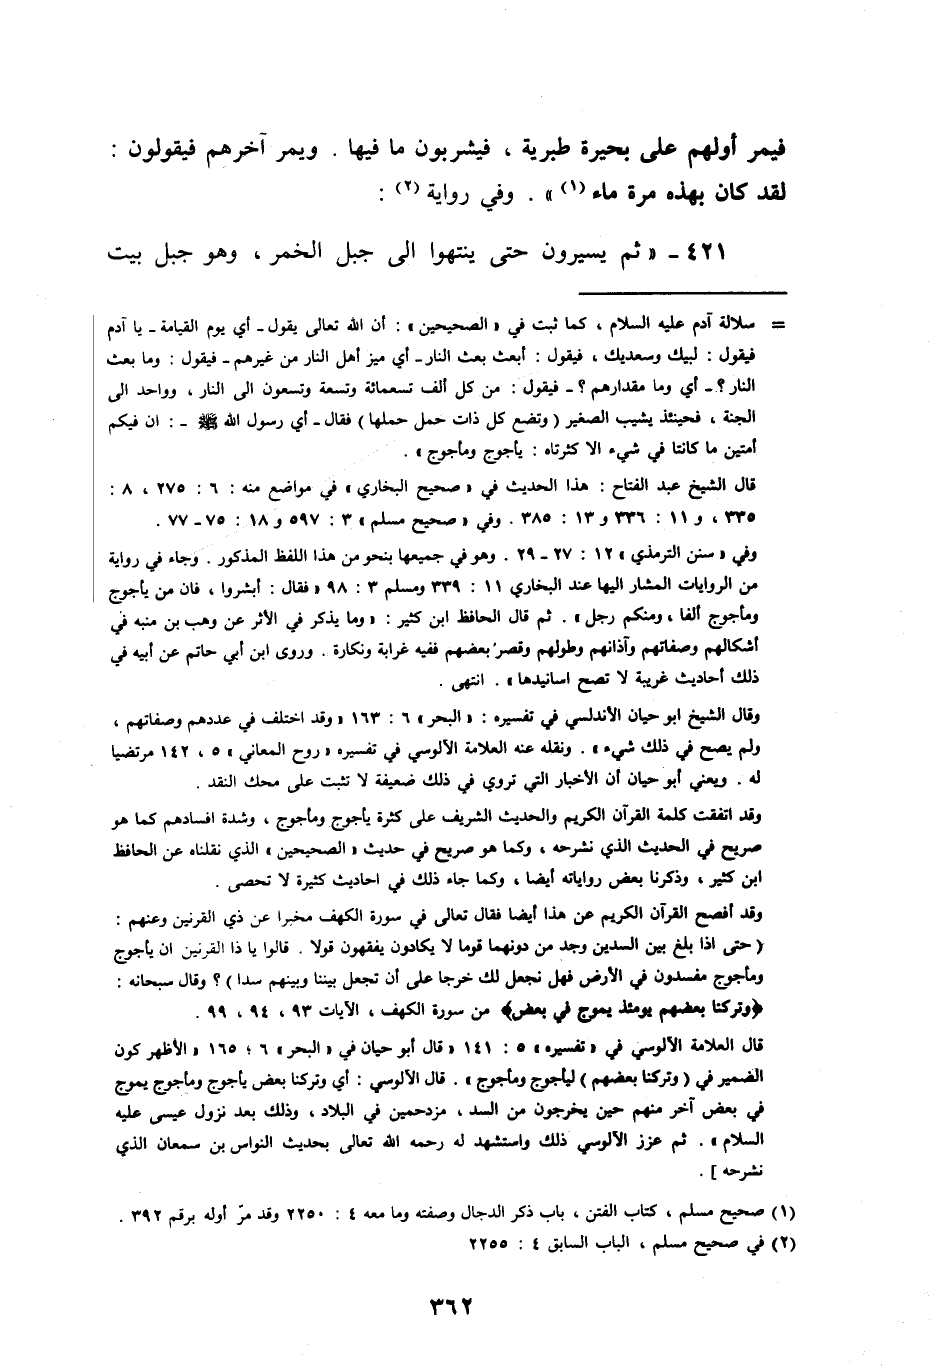 فيمر أولهم على بحيرة طبرية ، فيشربون ما فيها . ويمر آخرهم فيقولون :
لقد كان بهذه مرة ماء (١) » . وفي رواية (٢) :
٤٢١ ـ « ثم يسيرون حتى ينتهوا الى جبل الخمر ، وهو جبل بيت
= سلالة آدم عليه السلام ، كما ثبت في « الصحيحين » : أن الله تعالى يقول ـ أي يوم القيامة ـ يا آدم
فيقول : لبيك وسعديك ، فيقول : أبعث بعث النار ـ أي ميز أهل النار من غيرهم ـ فيقول : وما بعث
النار ؟ ـ أي وما مقدارهم ؟ ـ فيقول : من كل ألف تسعمائة وتسعة وتسعون الى النار ، وواحد الى
الجنة ، فحينئذ يشيب الصغير ( وتضع كل ذات حمل حملها ) فقال ـ أي رسول الله ﷺ ـ : ان فيكم
أمتين ما كانتا في شيء الا كثرتاه : يأجوج ومأجوج » .
قال الشيخ عبد الفتاح : هذا الحديث في « صحيح البخاري » في مواضع منه : ٦ : ٢٧٥ ، ٨ :
٣٣٥ ، و ١١ : ٣٣٦ و ١٣ : ٣٨٥ . وفي « صحيح مسلم » ٣ : ٥٩٧ و ١٨ : ٧٥ ـ ٧٧ .
وفي « سنن الترمذي » ١٢ : ٢٧ ـ ٢٩ . وهو في جميعها بنحو من هذا اللفظ المذكور . وجاء في رواية
من الروايات المشار اليها عند البخاري ١١ : ٣٣٩ ومسلم ٣ : ٩٨ « فقال : أبشروا ، فان من يأجوج
ومأجوج ألفا ، ومنكم رجل » . ثم قال الحافظ ابن كثير : « وما يذكر في الأثر عن وهب بن منبه في
أشكالهم وصفاتهم وآذانهم وطولهم وقصر بعضهم ففيه غرابة ونكارة . وروى ابن أبي حاتم عن أبيه في
ذلك أحاديث غريبة لا تصح اسانيدها » . انتهى .
وقال الشيخ ابو حيان الأندلسي في تفسيره : « البحر » ٦ : ١٦٣ « وقد اختلف في عددهم وصفاتهم ،
ولم يصح في ذلك شيء » . ونقله عنه العلامة الآلوسي في تفسيره « روح المعاني » ٥ ، ١٤٢ مرتضيا
له . ويعني أبو حيان أن الأخبار التي تروي في ذلك ضعيفة لا تثبت على محك النقد .
وقد اتفقت كلمة القرآن الكريم والحديث الشريف على كثرة يأجوج ومأجوج ، وشدة افسادهم كما هو
صريح في الحديث الذي نشرحه ، وكما هو صريح في حديث « الصحيحين » الذي نقلناه عن الحافظ
ابن كثير ، وذكرنا بعض رواياته أيضا ، وكما جاء ذلك في احاديث كثيرة لا تحصى .
وقد أفصح القرآن الكريم عن هذا أيضا فقال تعالى في سورة الكهف مخبرا عن ذي القرنين وعنهم :
( حتى اذا بلغ بين السدين وجد من دونهما قوما لا يكادون يفقهون قولا . قالوا يا ذا القرنين ان يأجوج
ومأجوج مفسدون في الأرض فهل نجعل لك خرجا على أن تجعل بيننا وبينهم سدا ) ؟ وقال سبحانه :
﴿وتركنا بعضهم يومئذ يموج في بعض﴾ من سورة الكهف ، الآيات ٩٣ ، ٩٤ ، ٩٩ .
قال العلامة الآلوسي في « تفسيره » ٥ : ١٤١ « قال أبو حيان في « البحر » ٦ : ١٦٥ « الأظهر كون
الضمير في ( وتركنا بعضهم ) ليأجوج ومأجوج » . قال الآلوسي : أي وتركنا بعض يأجوج ومأجوج يموج
في بعض آخر منهم حين يخرجون من السد ، مزدحمين في البلاد ، وذلك بعد نزول عيسى عليه
السلام » . ثم عزز الآلوسي ذلك واستشهد له رحمه الله تعالى بحديث النواس بن سمعان الذي
نشرحه ] .
(١) صحيح مسلم ، كتاب الفتن ، باب ذكر الدجال وصفته وما معه ٤ : ٢٢٥٠ وقد مرّ أوله برقم ٣٩٢ .
(٢) في صحيح مسلم ، الباب السابق ٤ : ٢٢٥٥
٣٦٢